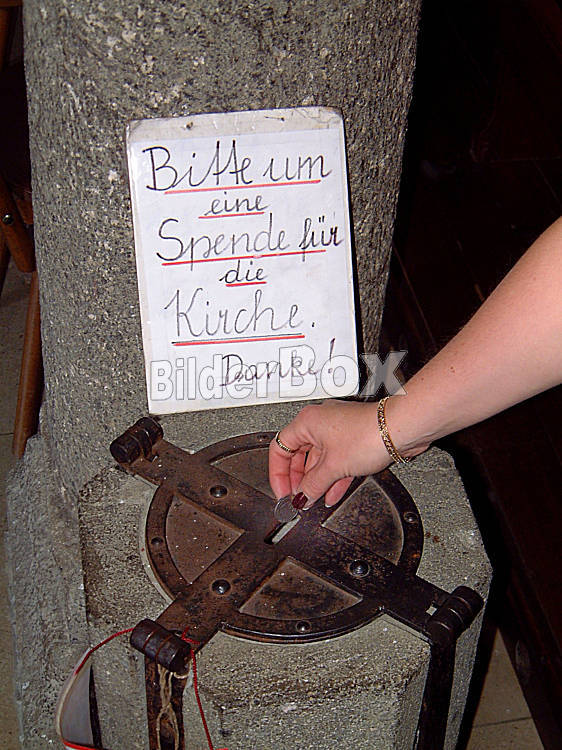 Bitte um
eine
Spende für
die
Kirche.
Danke!
BilderBox